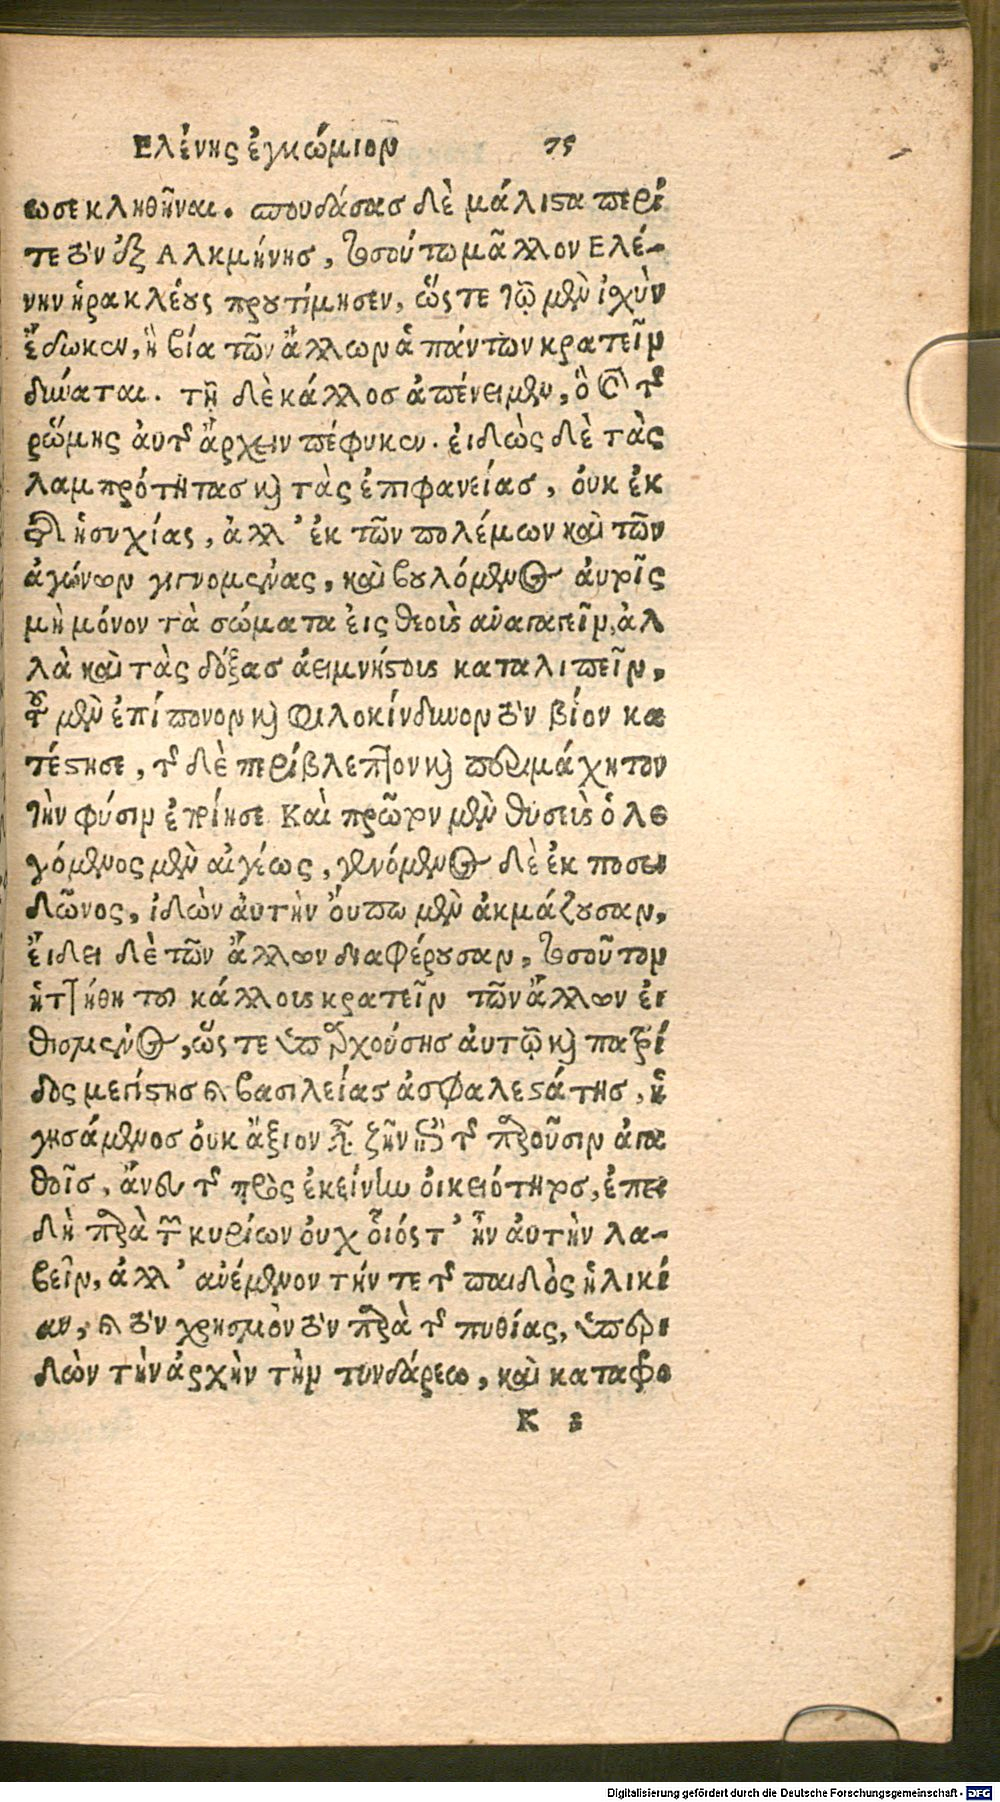 Ελένης ἐγκώμιον 75
ωσε κληθῆναι. σπουδάσας δὲ μάλιστα περί
τε τὸν ἐξ Αλκμήνης, τοσούτω μᾶλλον Ελέ-
νην ἡρακλέους προυτίμησεν, ὥστε τῷ μὲν ἰσχὺν
ἔδωκεν, ἣ βία τῶν ἄλλων ἁπάντων κρατεῖν
δύναται. τῇ δὲ κάλλος ἀπένειμεν, ὃ καὶ τῆς
ρώμης αὐτῆς ἄρχειν πέφυκεν. εἰδὼς δὲ τὰς
λαμπρότητας καὶ τὰς ἐπιφανείας, οὐκ ἐκ
τῆς ἡσυχίας, ἀλλ' ἐκ τῶν πολέμων καὶ τῶν
ἀγώνων γιγνομένας, καὶ βουλόμενος αὐτοῖς
μὴ μόνον τὰ σώματα εἰς θεοὺς ἀναγαγεῖν, ἀλ
λὰ καὶ τὰς δόξας ἀειμνήστους καταλιπεῖν,
τοῦ μὲν ἐπίπονον καὶ φιλοκίνδυνον τὸν βίον κα
τέστησε, τῆς δὲ περίβλεπτον καὶ περιμάχητον
τὴν φύσιν ἐποίησε Καὶ πρῶτον μὲν θυσεὺς ὁ λε
γόμενος μὲν αἰγέως, γενόμενος δὲ ἐκ ποσει
δῶνος, ἰδὼν αὐτὴν οὔπω μὲν ἀκμάζουσαν,
εἴδει δὲ τῶν ἄλλων διαφέρουσαν, τοσοῦτον
ἡττήθη του κάλλους κρατεῖν τῶν ἄλλων εἰ
θισμένος, ὥστε ὑπαρχούσης αὐτῷ καὶ πατρί
δος μεγίστης καὶ βασιλείας ἀσφαλεστάτης, ἡ
γησάμενος οὐκ ἄξιον εἶναι ζῆν ἐπὶ τοῖς παροῦσιν ἀγα
θοῖς, ἄνευ τῆς πρὸς ἐκείνην οἰκειότητος, ἐπει
δὴ παρὰ τῶν κυρίων οὐχ οἷός τ' ἦν αὐτὴν λα-
βεῖν, ἀλλ' ἀνέμενον τήν τε τῆς παιδὸς ἡλικί
αν, καὶ τὸν χρησμὸν τὸν παρὰ τῆς πυθίας, ὑπερι
δὼν τὴν ἀρχὴν τὴν τυνδάρεω, καὶ καταφρο
K 3
Digitalisierung gefördert durch die Deutsche Forschungsgemeinschaft - DFG